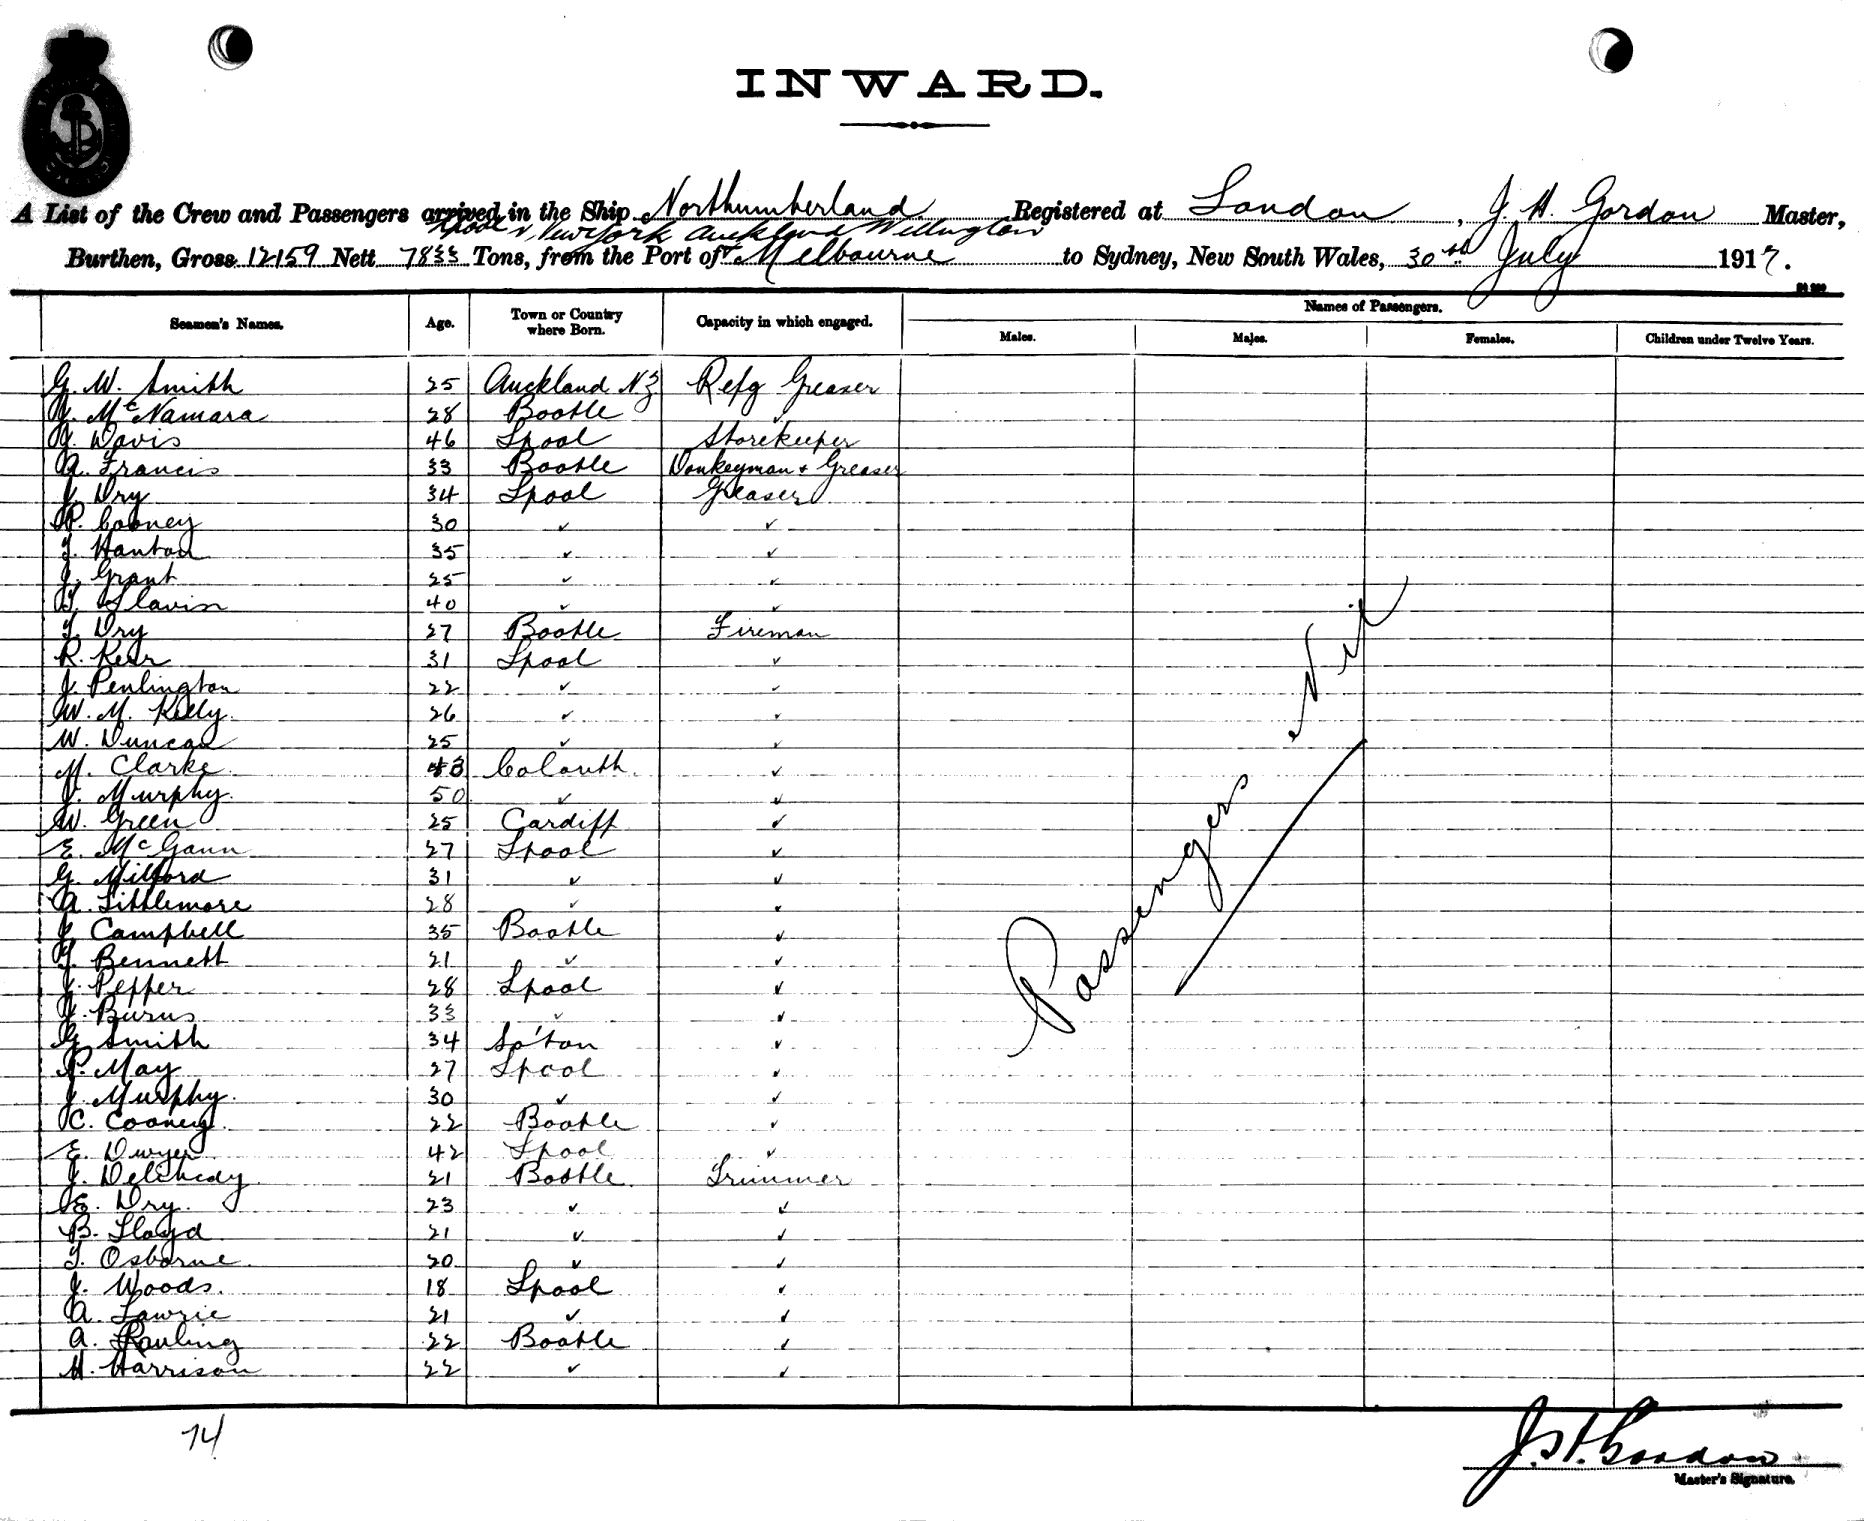 INWARD.
A List of the Crew and Passengers arrived in the Ship Northumberland Registered at London, J. H. Gordon Master,
Lpool, New York Auckland Wellington
Burthen, Gross 12159 Nett 7833 Tons, from the Port of Melbourne to Sydney, New South Wales, 30th July 1917.
Names of Passengers.
Seamen's Names. Age. Town or Country where Born. Capacity in which engaged. Males. Males. Females. Children under Twelve Years.
G. W. Smith 25 Auckland NZ Refg Greaser
J. McNamara 28 Bootle ✓
J. Davis 46 Lpool Storekeeper
A. Francis 33 Bootle Donkeyman + Greaser
J. Dry 34 Lpool Greaser
P. Cooney 30 ✓ ✓
J. Hanton 35 ✓ ✓
J. Grant 25 ✓ ✓
T. Slavin 40 ✓ ✓
T. Dry 27 Bootle Fireman
R. Kerr 31 Lpool ✓
J. Penlington 22 ✓ ✓
W. M. Kelly. 26 ✓ ✓
W. Duncan 25 ✓ ✓
M. Clarke 43 ✓
J. Murphy. 50 ✓ ✓
W. Green 25 Cardiff ✓
E. McGann 27 Lpool ✓
G. Milford 31 ✓ ✓
A. Littlemore 28 ✓ ✓
J. Campbell 35 Bootle ✓
T. Bennett 21 ✓ ✓
J. Pepper 28 Lpool ✓
J. Burns 33 ✓ ✓
G. Smith 34 So'ton ✓
P. May 27 Lpool ✓
J. Murphy. 30 ✓ ✓
C. Cooney. 22 Bootle ✓
E. Dwyer 42 Lpool ✓
J. 21 Bootle. Trimmer
E. Dry. 23 ✓ ✓
B. Lloyd 21 ✓ ✓
T. Osborne. 20 ✓ ✓
J. Woods. 18 Lpool ✓
A. Lawrie 21 ✓ ✓
A. 22 Bootle ✓
H. Harrison 22 ✓ ✓
Passengers Nil
74
J. H. Gordon
Master's Signature.